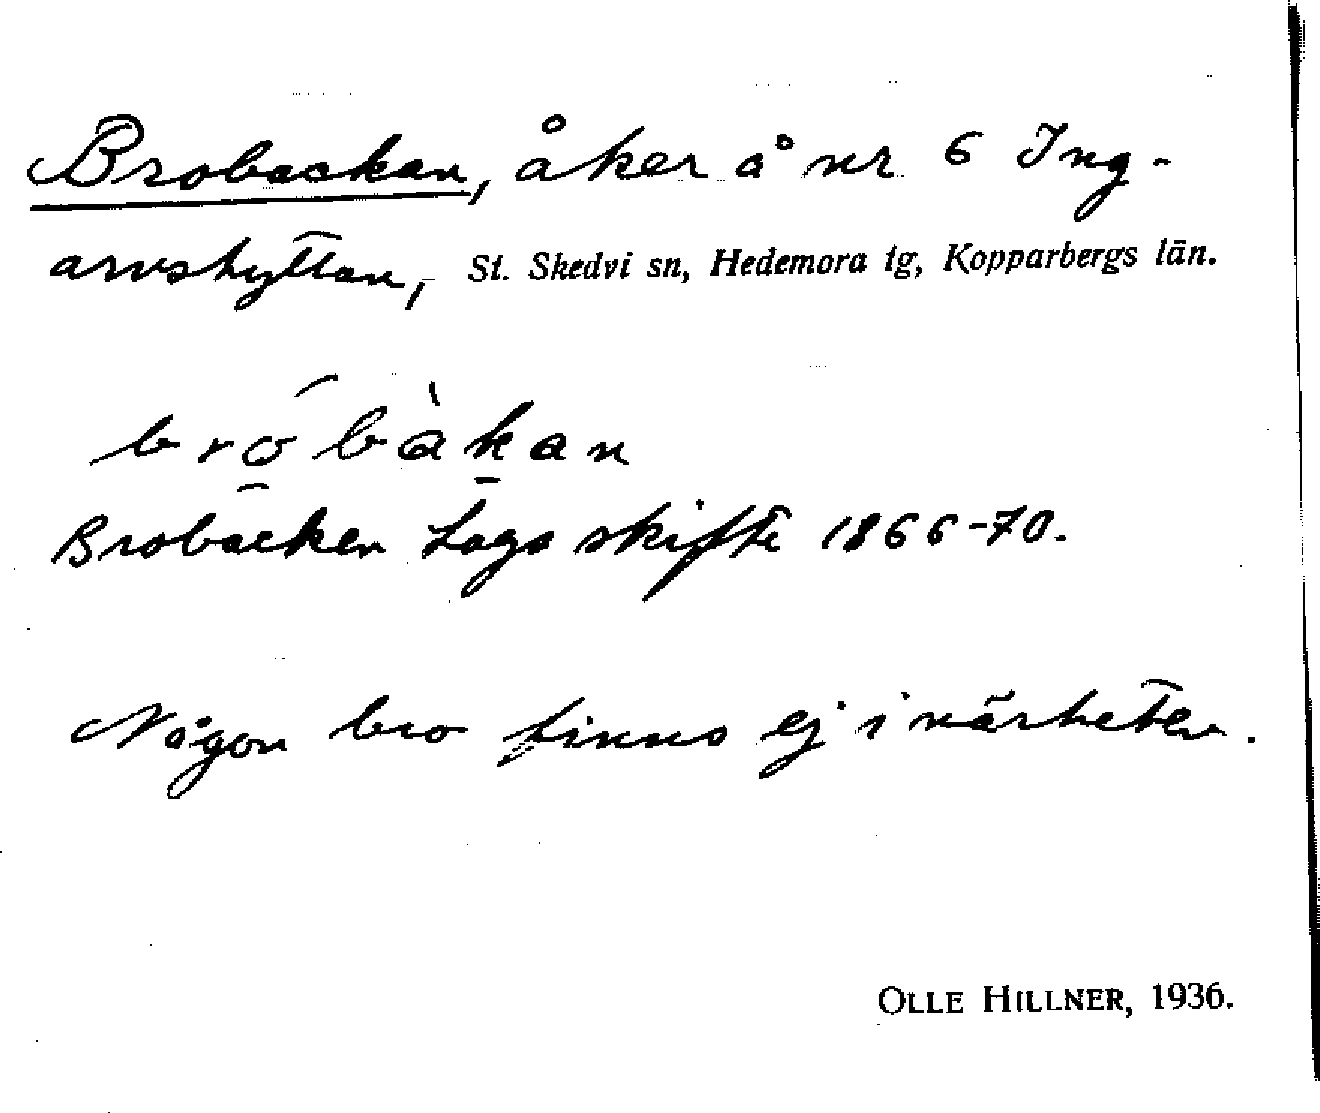 Brobackan, åker å nr 6 Ing-
arvshyttan, St. Skedvi sn, Hedemora tg, Kopparbergs län.
bró̱bàka̱n
Brobacken Laga skifte 1866-70.
Någon bro finns ej i närheten.
OLLE HILLNER, 1936.